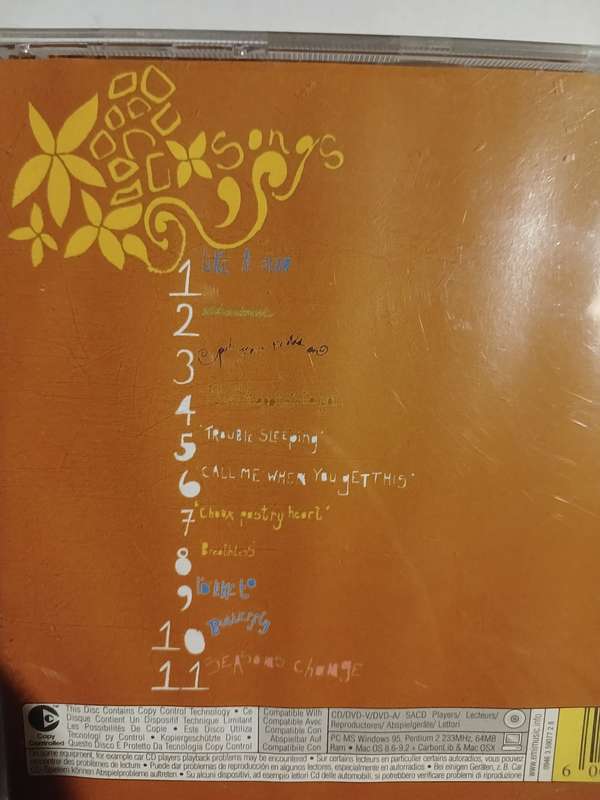 songs
1 like a star
2
3 put your records on
4
5 "TROUBLE SLEEPing"
6 "CALL ME WHEN YOU gET THIS"
7 "Choux pastry heart"
8 Breathless
9 I'd like to
10 Butterfly
11 SEASONS CHANGE
Copy Controlled
This Disc Contains Copy Control Technology • Ce
Disque Contient Un Dispositif Technique Limitant
Les Possibilités De Copie • Este Disco Utiliza
Tecnologi py Control • Kopiergeschützte Disc •
Questo Disco È Protetto Da Tecnologia Copy Control
Compatible With
Compatible Avec
Compatible Con
Abspielbar Auf
Compatibile Con
CD/DVD-V/DVD-A/ SACD Players/ Lecteurs/
Reproductores/ Abspielgeräte/ Lettori
PC MS Windows 95, Pentium 2 233MHz, 64MB
Ram • Mac OS 8.6-9.2 + CarbonLib & Mac OSX
On some equipment, for example car CD players playback problems may be encountered • Sur certains lecteurs en particulier certains autoradios, vous pouvez
rencontrer des problèmes de lecture • Puede dar problemas de reproducción en algunos lectores, especialmente en autoradios • Bei einigen Geräten, z. B. Car
CD-Spielern können Abspielprobleme auftreten • Su alcuni dispositivi, ad esempio lettori Cd delle automobili, si potrebbero verificare problemi di riproduzione
www.emimusic.info